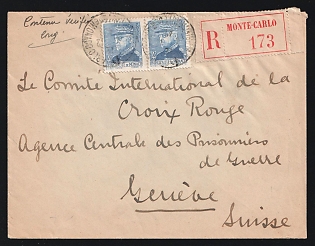 Contenu vérifié
MONTE-CARLO
R 173
Le Comite International de la
Croix Rouge
Agence Centrale des Prisonniers
de Guerre
Genève
Suisse